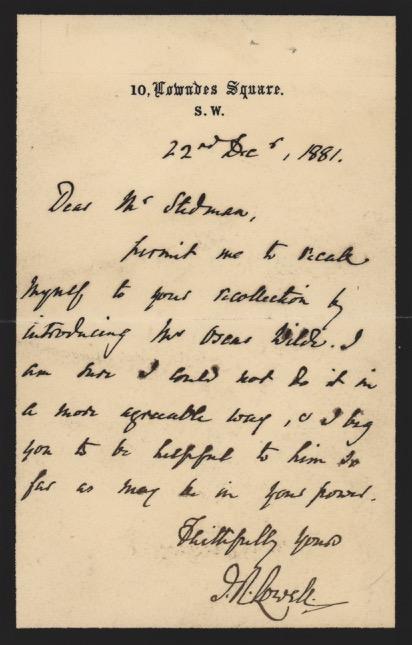 10, Lowndes Square.
S. W.
22nd Decr, 1881.
Dear Mr Stedman,
permit me to recall
myself to your recollection by
introducing Mr Oscar Wilde. I
am sure I could not do it in
a more agreeable way, & I beg
you to be helpful to him so
far as may be in your power.
Faithfully yours
J. R. Lowell.